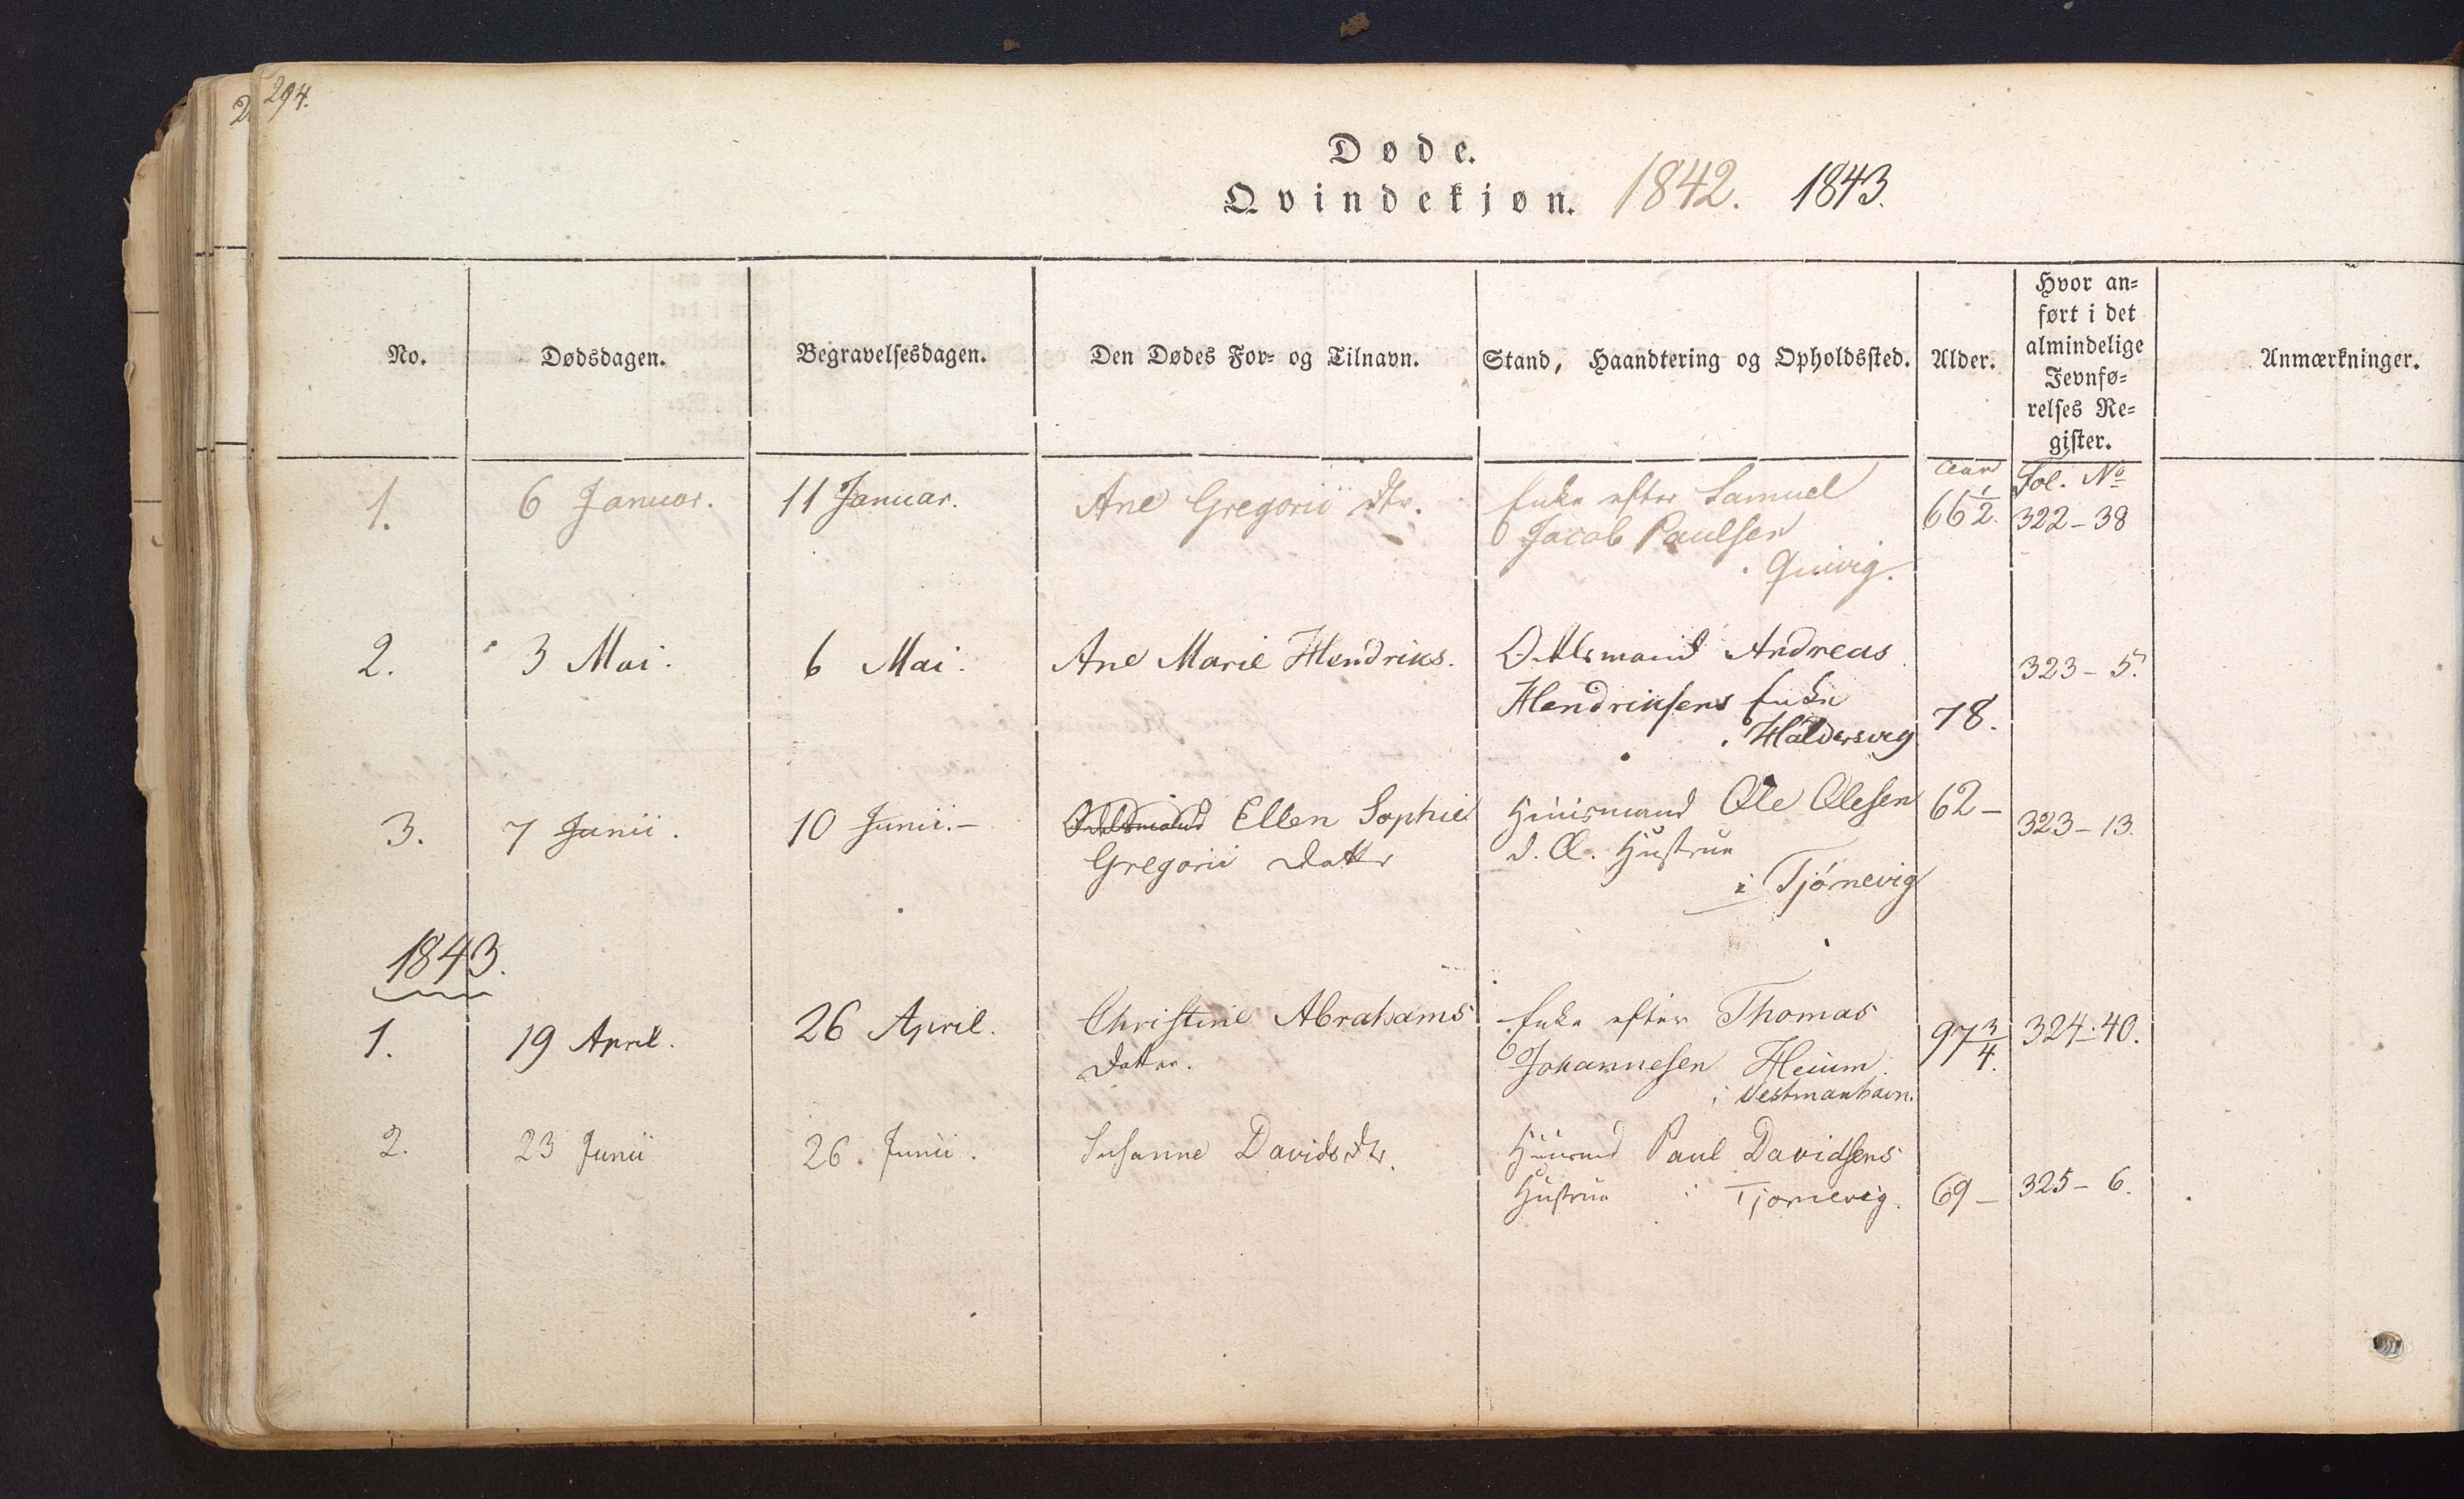 294.
Døde.
Qvindekjøn. 1842. 1843.
No.
Dødsdagen.
Begravelsesdagen.
Den Dødes For- og Tilnavn.
Stand, Haandtering og Opholdssted.
Alder.
Hvor an-
ført i det
almindelige
Jevnfø-
relses Re-
gister.
Anmærkninger.
Aar Fol. No
1. 6 Januar. 11 Januar. Ane Gregorii Dtr. Enke efter Samuel 66 1/2. 322-38
Jacob Paulsen
Qvivig.
2. 3 Mai. 6 Mai. Ane Marie Hendriks. Odelsmand Andreas 323-5.
Hendriksens Enke 78.
Haldersvig
3. 7 Junii. 10 Junii.- Odelsmand Ellen Sophie Huusmand Ole Olesen 62- 323-13.
Gregorii Datter d. Æ. Hustrue
i Tjørnevig
1843.
1. 19 April. 26 April. Christine Abrahams Enke efter Thomas 97 3/4. 324-40.
Datter. Johannesen Heium
i Vestmanhavn.
2. 23 Junii 26. Junii. Susanne Davids Dtr. Huusmd Paul Davidsens
Hustrue i Tjornevig. 69- 325-6.